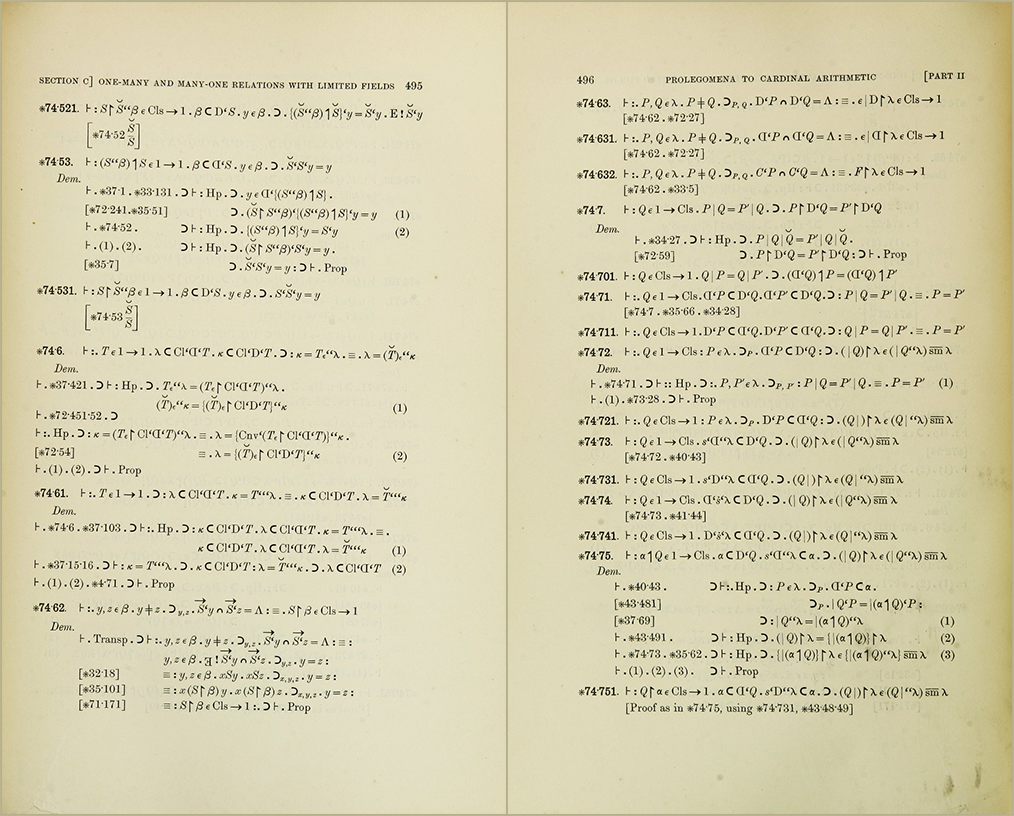 SECTION C] ONE-MANY AND MANY-ONE RELATIONS WITH LIMITED FIELDS 495
✳74·521. ⊢ : S↾S̆“β ε Cls → 1 . β ⊂ D‘S . y ε β . ⊃ . {(S̆“β)↿S}‘y = S̆‘y . E ! S̆‘y
[✳74·52 S̆/S]
✳74·53. ⊢ : (S“β)↿S ε 1 → 1 . β ⊂ ᗡ‘S . y ε β . ⊃ . S̆‘S‘y = y
Dem.
⊢ . ✳37·1 . ✳33·131 . ⊃ ⊢ : Hp . ⊃ . y ε ᗡ‘{(S“β)↿S} .
[✳72·241.✳35·51] ⊃ . (S̆↾S“β)‘{(S“β)↿S}‘y = y (1)
⊢ . ✳74·52 . ⊃ ⊢ : Hp . ⊃ . {(S“β)↿S}‘y = S‘y (2)
⊢ . (1) . (2) . ⊃ ⊢ : Hp . ⊃ . (S̆↾S“β)‘S‘y = y .
[✳35·7] ⊃ . S̆‘S‘y = y : ⊃ ⊢ . Prop
✳74·531. ⊢ : S↾S̆“β ε 1 → 1 . β ⊂ D‘S . y ε β . ⊃ . S‘S̆‘y = y
[✳74·53 S̆/S]
✳74·6. ⊢ :. T ε 1 → 1 . λ ⊂ Cl‘ᗡ‘T . κ ⊂ Cl‘D‘T . ⊃ : κ = Tₑ“λ . ≡ . λ = (T̆)ₑ“κ
Dem.
⊢ . ✳37·421 . ⊃ ⊢ : Hp . ⊃ . Tₑ“λ = (Tₑ↾Cl‘ᗡ‘T)“λ .
(T̆)ₑ“κ = {(T̆)ₑ↾Cl‘D‘T}“κ (1)
⊢ . ✳72·451·52 . ⊃
⊢ :. Hp . ⊃ : κ = (Tₑ↾Cl‘ᗡ‘T)“λ . ≡ . λ = {Cnv‘(Tₑ↾Cl‘ᗡ‘T)}“κ .
[✳72·54] ≡ . λ = {(T̆)ₑ↾Cl‘D‘T}“κ (2)
⊢ . (1) . (2) . ⊃ ⊢ . Prop
✳74·61. ⊢ :. T ε 1 → 1 . ⊃ : λ ⊂ Cl‘ᗡ‘T . κ = T“‘λ . ≡ . κ ⊂ Cl‘D‘T . λ = T̆“‘κ
Dem.
⊢ . ✳74·6 . ✳37·103 . ⊃ ⊢ :. Hp . ⊃ : κ ⊂ Cl‘D‘T . λ ⊂ Cl‘ᗡ‘T . κ = T“‘λ . ≡ .
κ ⊂ Cl‘D‘T . λ ⊂ Cl‘ᗡ‘T . λ = T̆“‘κ (1)
⊢ . ✳37·15·16 . ⊃ ⊢ : κ = T“‘λ . ⊃ . κ ⊂ Cl‘D‘T : λ = T̆“‘κ . ⊃ . λ ⊂ Cl‘ᗡ‘T (2)
⊢ . (1) . (2) . ✳4·71 . ⊃ ⊢ . Prop
✳74·62. ⊢ :. y, z ε β . y ≠ z . ⊃y,z . S⃗‘y ∩ S⃗‘z = Λ : ≡ . S↾β ε Cls → 1
Dem.
⊢ . Transp . ⊃ ⊢ :. y, z ε β . y ≠ z . ⊃y,z . S⃗‘y ∩ S⃗‘z = Λ : ≡ :
y, z ε β . ∃ ! S⃗‘y ∩ S⃗‘z . ⊃y,z . y = z :
[✳32·18] ≡ : y, z ε β . xSy . xSz . ⊃x,y,z . y = z :
[✳35·101] ≡ : x(S↾β)y . x(S↾β)z . ⊃x,y,z . y = z :
[✳71·171] ≡ : S↾β ε Cls → 1 :. ⊃ ⊢ . Prop
496 PROLEGOMENA TO CARDINAL ARITHMETIC [PART II
✳74·63. ⊢ :. P, Q ε λ . P ≠ Q . ⊃P,Q . D‘P ∩ D‘Q = Λ : ≡ . ε | D↾λ ε Cls → 1
[✳74·62 . ✳72·27]
✳74·631. ⊢ :. P, Q ε λ . P ≠ Q . ⊃P,Q . ᗡ‘P ∩ ᗡ‘Q = Λ : ≡ . ε | ᗡ↾λ ε Cls → 1
[✳74·62 . ✳72·27]
✳74·632. ⊢ :. P, Q ε λ . P ≠ Q . ⊃P,Q . C‘P ∩ C‘Q = Λ : ≡ . F↾λ ε Cls → 1
[✳74·62 . ✳33·5]
✳74·7. ⊢ : Q ε 1 → Cls . P | Q = P′ | Q . ⊃ . P↾D‘Q = P′↾D‘Q
Dem.
⊢ . ✳34·27 . ⊃ ⊢ : Hp . ⊃ . P | Q | Q̆ = P′ | Q | Q̆ .
[✳72·59] ⊃ . P↾D‘Q = P′↾D‘Q : ⊃ ⊢ . Prop
✳74·701. ⊢ : Q ε Cls → 1 . Q | P = Q | P′ . ⊃ . (ᗡ‘Q)↿P = (ᗡ‘Q)↿P′
✳74·71. ⊢ :. Q ε 1 → Cls . ᗡ‘P ⊂ D‘Q . ᗡ‘P′ ⊂ D‘Q . ⊃ : P | Q = P′ | Q . ≡ . P = P′
[✳74·7 . ✳35·66 . ✳34·28]
✳74·711. ⊢ :. Q ε Cls → 1 . D‘P ⊂ ᗡ‘Q . D‘P′ ⊂ ᗡ‘Q . ⊃ : Q | P = Q | P′ . ≡ . P = P′
✳74·72. ⊢ :. Q ε 1 → Cls : P ε λ . ⊃P . ᗡ‘P ⊂ D‘Q : ⊃ . ( | Q)↾λ ε ( | Q“λ) s̅m̅ λ
Dem.
⊢ . ✳74·71 . ⊃ ⊢ :: Hp . ⊃ :. P, P′ ε λ . ⊃P,P′ : P | Q = P′ | Q . ≡ . P = P′ (1)
⊢ . (1) . ✳73·28 . ⊃ ⊢ . Prop
✳74·721. ⊢ :. Q ε Cls → 1 : P ε λ . ⊃P . D‘P ⊂ ᗡ‘Q : ⊃ . (Q | )↾λ ε (Q | “λ) s̅m̅ λ
✳74·73. ⊢ : Q ε 1 → Cls . s‘ᗡ“λ ⊂ D‘Q . ⊃ . ( | Q)↾λ ε ( | Q“λ) s̅m̅ λ
[✳74·72 . ✳40·43]
✳74·731. ⊢ : Q ε Cls → 1 . s‘D“λ ⊂ ᗡ‘Q . ⊃ . (Q | )↾λ ε (Q | “λ) s̅m̅ λ
✳74·74. ⊢ : Q ε 1 → Cls . ᗡ‘ṡ‘λ ⊂ D‘Q . ⊃ . ( | Q)↾λ ε ( | Q“λ) s̅m̅ λ
[✳74·73 . ✳41·44]
✳74·741. ⊢ : Q ε Cls → 1 . D‘ṡ‘λ ⊂ ᗡ‘Q . ⊃ . (Q | )↾λ ε (Q | “λ) s̅m̅ λ
✳74·75. ⊢ : α↿Q ε 1 → Cls . α ⊂ D‘Q . s‘ᗡ“λ ⊂ α . ⊃ . ( | Q)↾λ ε ( | Q“λ) s̅m̅ λ
Dem.
⊢ . ✳40·43 . ⊃ ⊢ :. Hp . ⊃ : P ε λ . ⊃P . ᗡ‘P ⊂ α .
[✳43·481] ⊃P . | Q‘P = | (α↿Q)‘P :
[✳37·69] ⊃ : | Q“λ = | (α↿Q)“λ (1)
⊢ . ✳43·491 . ⊃ ⊢ : Hp . ⊃ . ( | Q)↾λ = { | (α↿Q)}↾λ (2)
⊢ . ✳74·73 . ✳35·62 . ⊃ ⊢ : Hp . ⊃ . { | (α↿Q)}↾λ ε { | (α↿Q)“λ} s̅m̅ λ (3)
⊢ . (1) . (2) . (3) . ⊃ ⊢ . Prop
✳74·751. ⊢ : Q↾α ε Cls → 1 . α ⊂ ᗡ‘Q . s‘D“λ ⊂ α . ⊃ . (Q | )↾λ ε (Q | “λ) s̅m̅ λ
[Proof as in ✳74·75, using ✳74·731, ✳43·48·49]